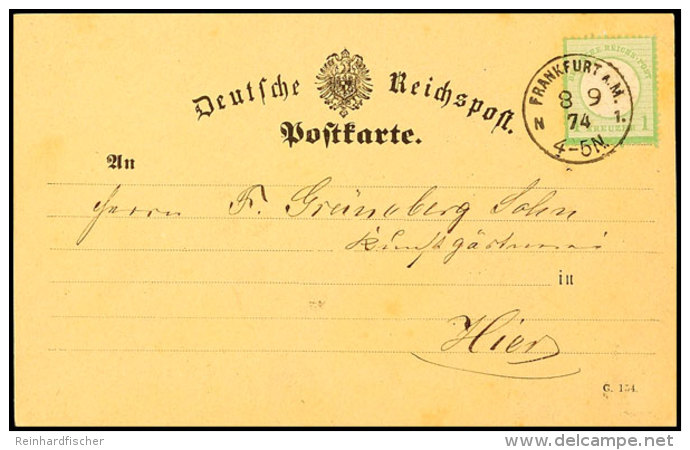 Deutsche Reichspost.
Postkarte.
FRANKFURT A.M.
8 9
74 1.
N
4-5N.
KREUZER 1
An
Herrn F. Grüneberg Sohn
Kunstgärtnerei
in
Hier
G. 154.
Reinhardfischer
delcampe.net